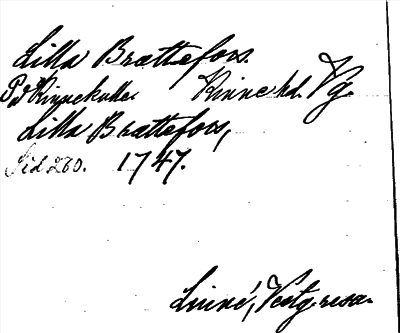 Lilla Brattefors.
På Kinnekulle. Kinne hd. Vg.
Lilla Brattefors,
Sid 280. 1747.
Linné, Vestg. resa.